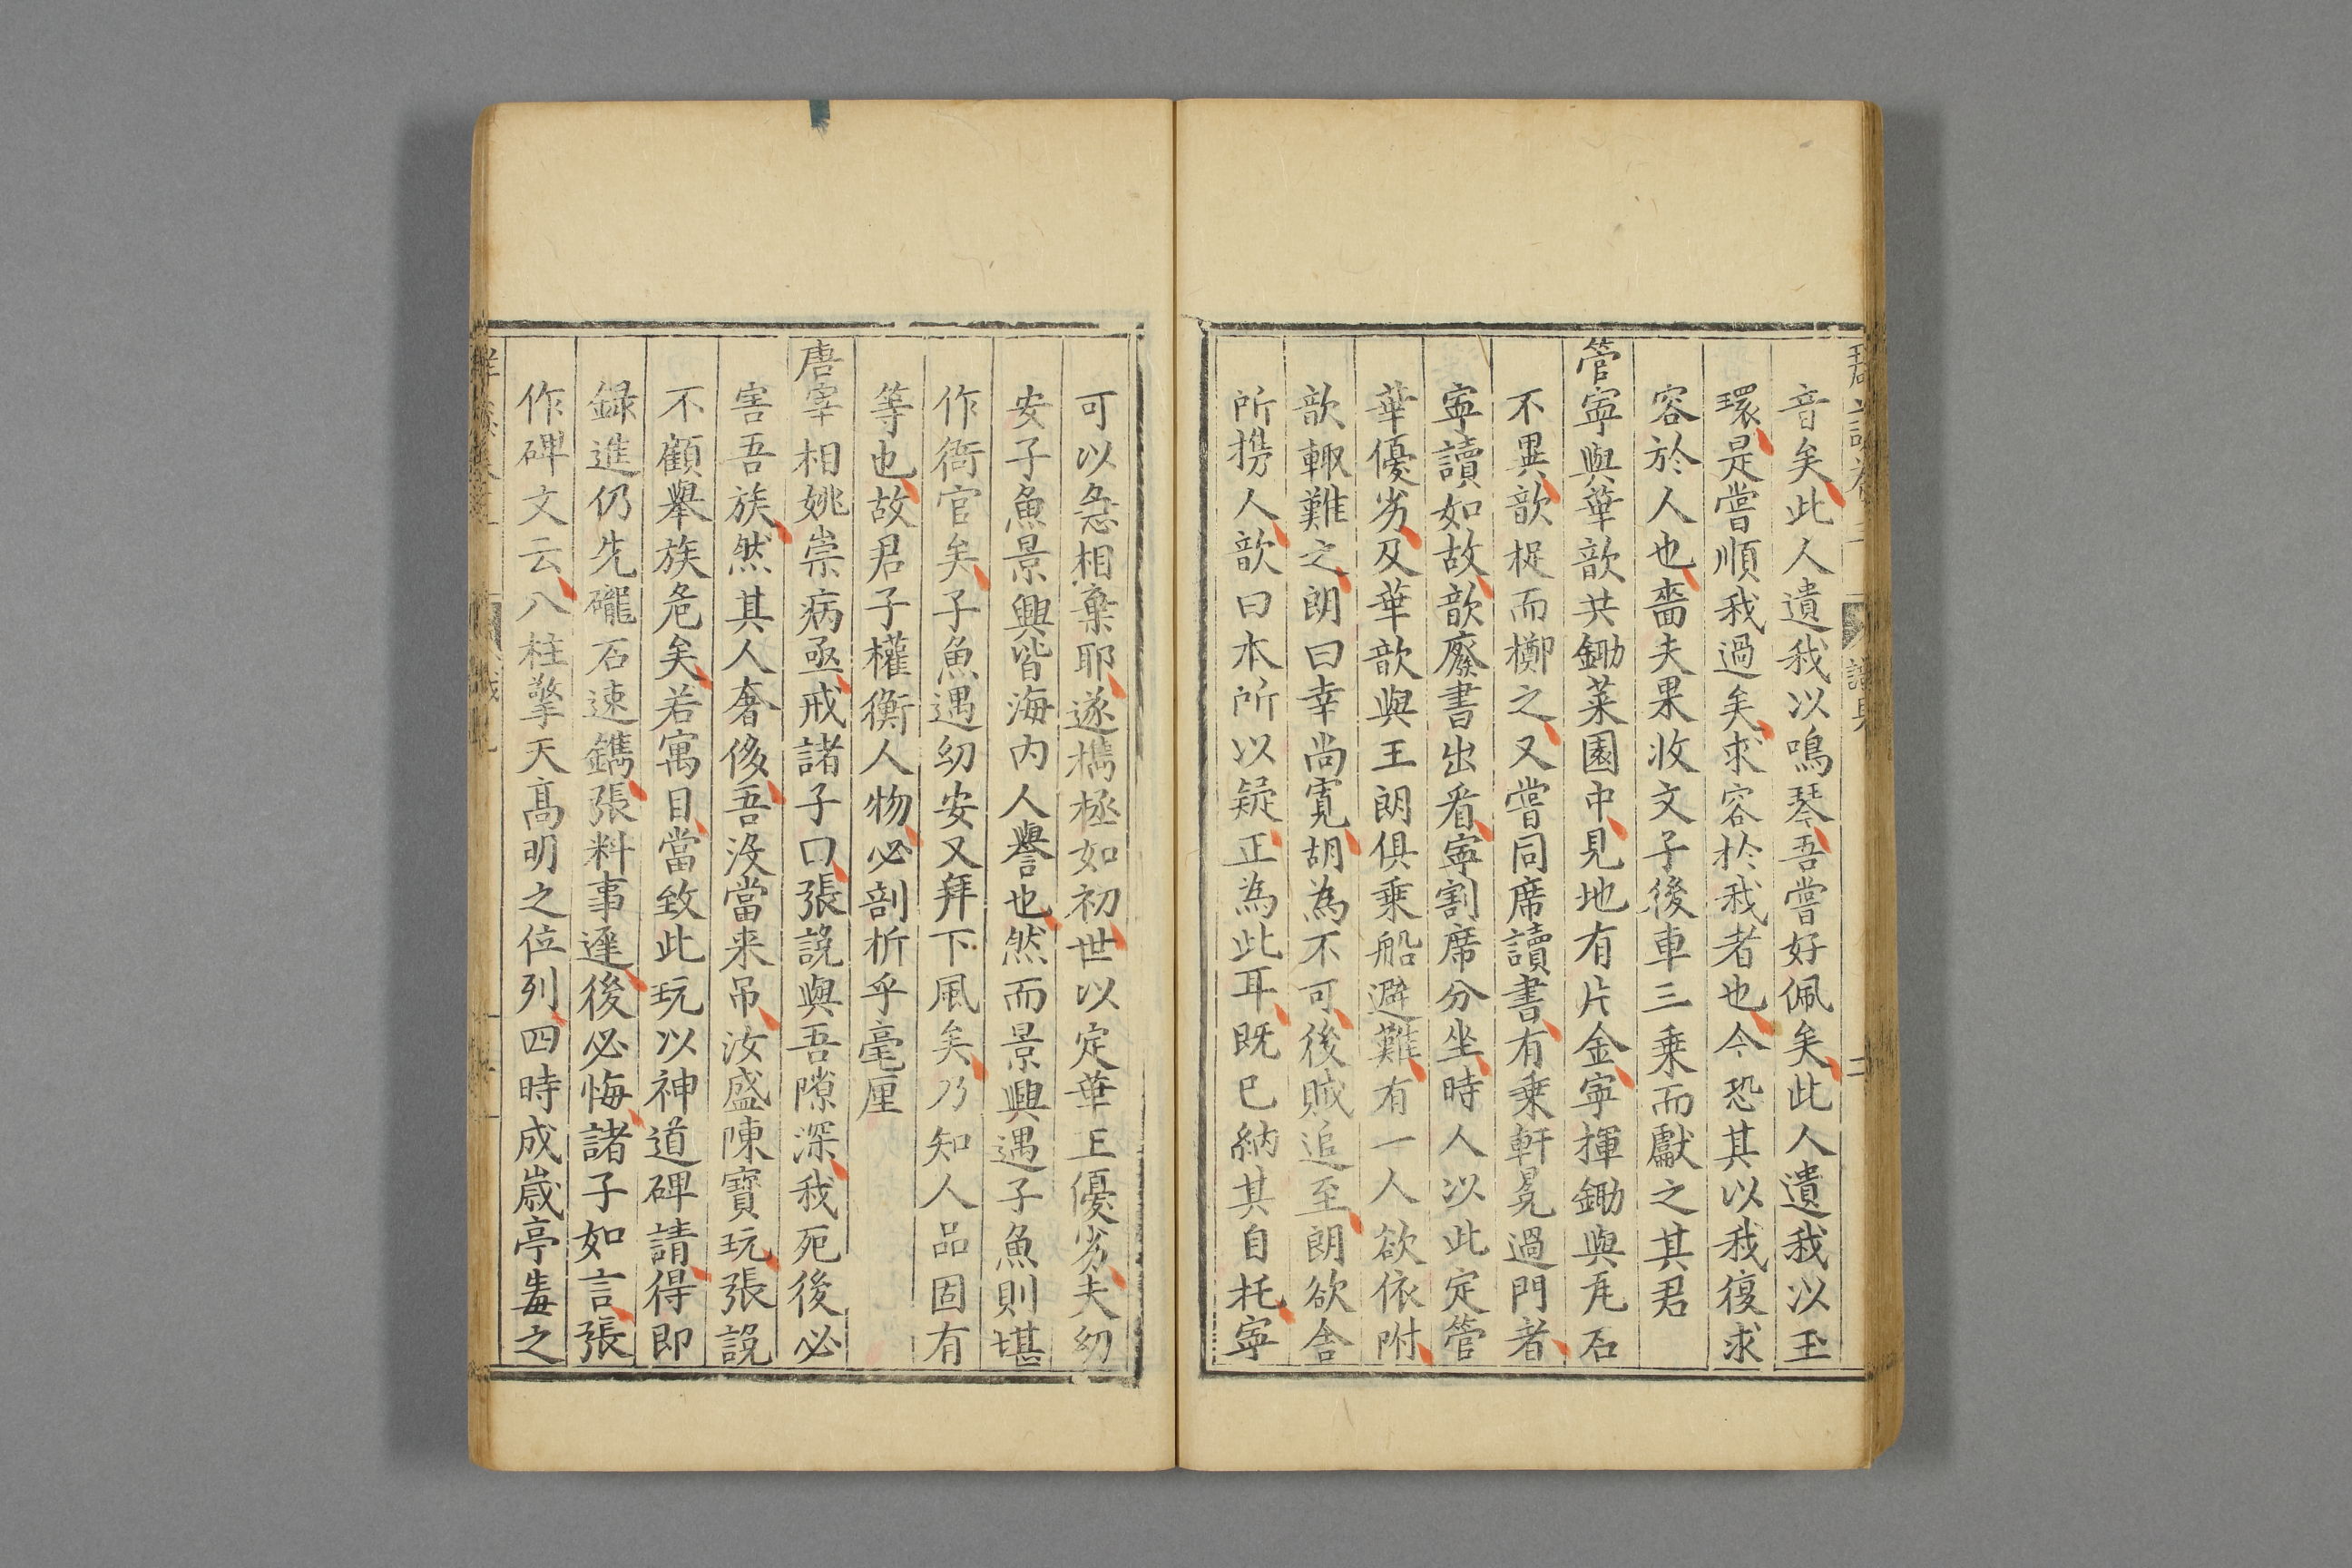 音矣此人遺我以鳴琴吾嘗好佩矣此人遺我以玉
環是嘗順我過矣求容於我者也今恐其以我復求
容於人也嗇夫果收文子後車三乗而獻之其君
管寧與華歆共鋤菜園中見地有片金寧揮鋤與瓦石
不異歆捉而擲之又嘗同席讀書有乗軒冕過門者
寧讀如故歆廢書出看寧割席分坐時人以此定管
華優劣及華歆與王朗俱乗船避難有一人欲依附
歆輙難之朗曰幸尚寬胡為不可後賊追至朗欲舍
所携人歆曰本所以疑正為此耳既已納其自托寧
可以急相棄耶遂携拯如初世以定華王優劣夫幼
安子魚景興皆海内人譽也然而景興遇子魚則堪
作衙官矣子魚遇幼安又拜下風矣乃知人品固有
等也故君子權衡人物必剖析乎毫厘
唐宰相姚崇病亟戒諸子曰張說與吾隙深我死後必
害吾族然其人奢侈吾没當来吊汝盛陳寶玩張說
不顧舉族危矣若寓目當致此玩以神道碑請得即
録進仍先礲石速鐫張料事遲後必悔諸子如言張
作碑文云八柱擎天高明之位列四時成歲亭毒之